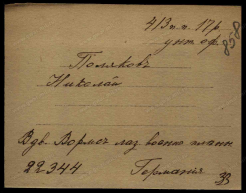 413 п.п. 17 р.
унт. оф.
858
Поляковъ
Николай
Вдв. Вормсъ лаз. военно пленн
22344 Германія
33